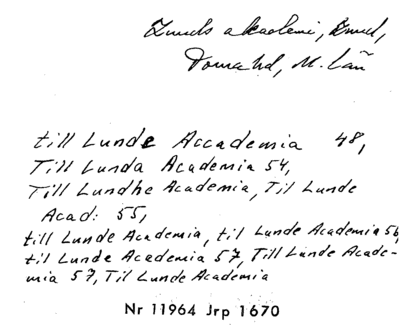 Lunds akademi, Lund,
Torna hd, M. län
till Lunde Accademia 48,
Till Lunda Academia 54,
Till Lundhe Academia, Til Lunde
Acad: 55,
till Lunde Academia, til Lunde Academia 56,
til Lunde Academia 57, Till Lunde Acade-
mia 57, Til Lunde Academia
Nr 11964 Jrp 1670